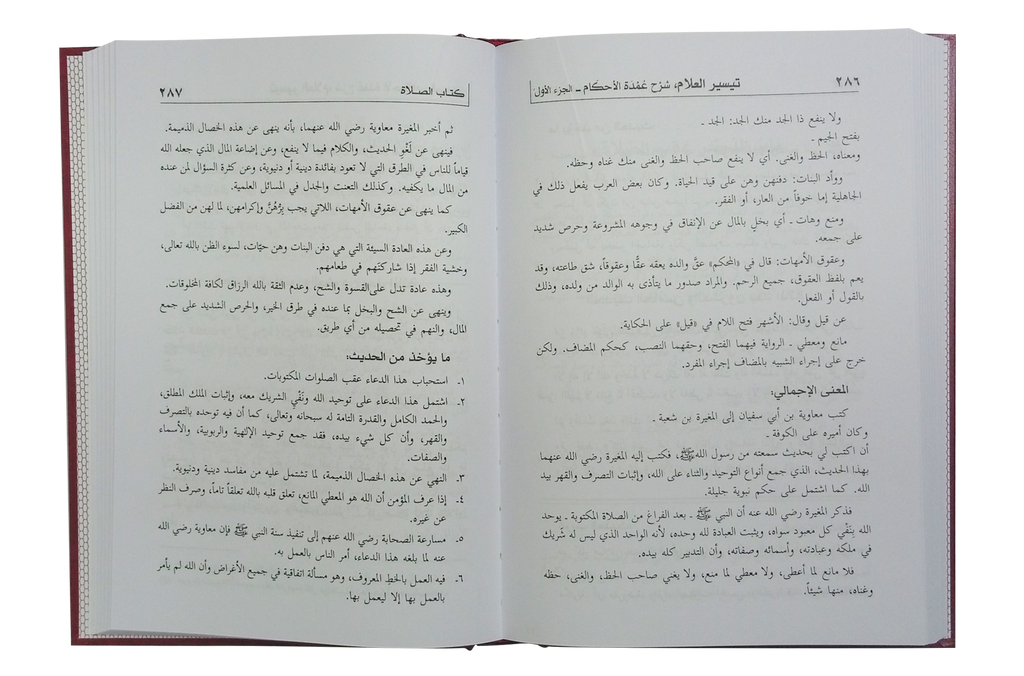 تيسير العلام، شرح عمدة الأحكام ـ الجزء الأول
٢٨٦
ولا ينفع ذا الجد منك الجد: الجد ـ
بفتح الجيم ـ
ومعناه، الحظ والغنى. أي لا ينفع صاحب الحظ والغنى منك غناه وحظه.
ووأد البنات: دفنهن وهن على قيد الحياة. وكان بعض العرب يفعل ذلك في
الجاهلية إما خوفاً من العار، أو الفقر.
ومنع وهات ـ أي بخلٍ بالمال عن الإنفاق في وجوهه المشروعة وحرص شديد
على جمعه.
وعقوق الأمهات: قال في «المحكم» عقَّ والده يعقه عقًّا وعقوقاً، شق طاعته، وقد
يعم بلفظ العقوق، جميع الرحم. والمراد صدور ما يتأذى به الوالد من ولده، وذلك
بالقول أو الفعل.
عن قيل وقال: الأشهر فتح اللام في «قيل» على الحكاية.
مانع ومعطي ـ الرواية فيهما الفتح، وحقهما النصب، كحكم المضاف. ولكن
خرج على إجراء الشبيه بالمضاف إجراء المفرد.
المعنى الإجمالي:
كتب معاوية بن أبي سفيان إلى المغيرة بن شعبة ـ
وكان أميره على الكوفة ـ
أن اكتب لي بحديث سمعته من رسول الله ﷺ، فكتب إليه المغيرة رضي الله عنهما
بهذا الحديث، الذي جمع أنواع التوحيد والثناء على الله، وإثبات التصرف والقهر بيد
الله. كما اشتمل على حكم نبوية جليلة.
فذكر المغيرة رضي الله عنه أن النبي ﷺ ـ بعد الفراغ من الصلاة المكتوبة ـ يوحد
الله بنَفْي كل معبود سواه، ويثبت العبادة لله وحده، لأنه الواحد الذي ليس له شريك
في ملكه وعبادته، وأسمائه وصفاته، وأن التدبير كله بيده.
فلا مانع لما أعطى، ولا معطي لما منع، ولا يغني صاحب الحظ، والغنى، حظه
وغناه، منها شيئاً.
كتاب الصلاة
٢٨٧
ثم أخبر المغيرة معاوية رضي الله عنهما، بأنه ينهى عن هذه الخصال الذميمة.
فينهى عن لَغْوِ الحديث، والكلام فيما لا ينفع، وعن إضاعة المال الذي جعله الله
قياماً للناس في الطرق التي لا تعود بفائدة دينية أو دنيوية، وعن كثرة السؤال لمن عنده
من المال ما يكفيه. وكذلك التعنت والجدل في المسائل العلمية.
كما ينهى عن عقوق الأمهات، اللاتي يجب بِرُّهُنَّ وإكرامهن، لما لهن من الفضل
الكبير.
وعن هذه العادة السيئة التي هي دفن البنات وهن حيَّات، لسوء الظن بالله تعالى،
وخشية الفقر إذا شاركنَهم في طعامهم.
وهذه عادة تدل على القسوة والشح، وعدم الثقة بالله الرزاق لكافة المخلوقات.
وينهى عن الشح والبخل بما عنده في طرق الخير، والحرص الشديد على جمع
المال، والنهم في تحصيله من أي طريق.
ما يؤخذ من الحديث:
١ـ استحباب هذا الدعاء عقب الصلوات المكتوبات.
٢ـ اشتمل هذا الدعاء على توحيد الله ونَفْي الشريك معه، وإثبات الملك المطلق،
والحمد الكامل والقدرة التامة له سبحانه وتعالى، كما أن فيه توحده بالتصرف
والقهر، وأن كل شيء بيده، فقد جمع توحيد الإلهية والربوبية، والأسماء
والصفات.
٣ـ النهي عن هذه الخصال الذميمة، لما تشتمل عليه من مفاسد دينية ودنيوية.
٤ـ إذا عرف المؤمن أن الله هو المعطي المانع، تعلق قلبه بالله تعلقاً تاماً، وصرف النظر
عن غيره.
٥ـ مسارعة الصحابة رضي الله عنهم إلى تنفيذ سنة النبي ﷺ فإن معاوية رضي الله
عنه لما بلغه هذا الدعاء، أمر الناس بالعمل به.
٦ـ فيه العمل بالخط المعروف، وهو مسألة اتفاقية في جميع الأغراض وأن الله لم يأمر
بالعمل بها إلا ليعمل بها.